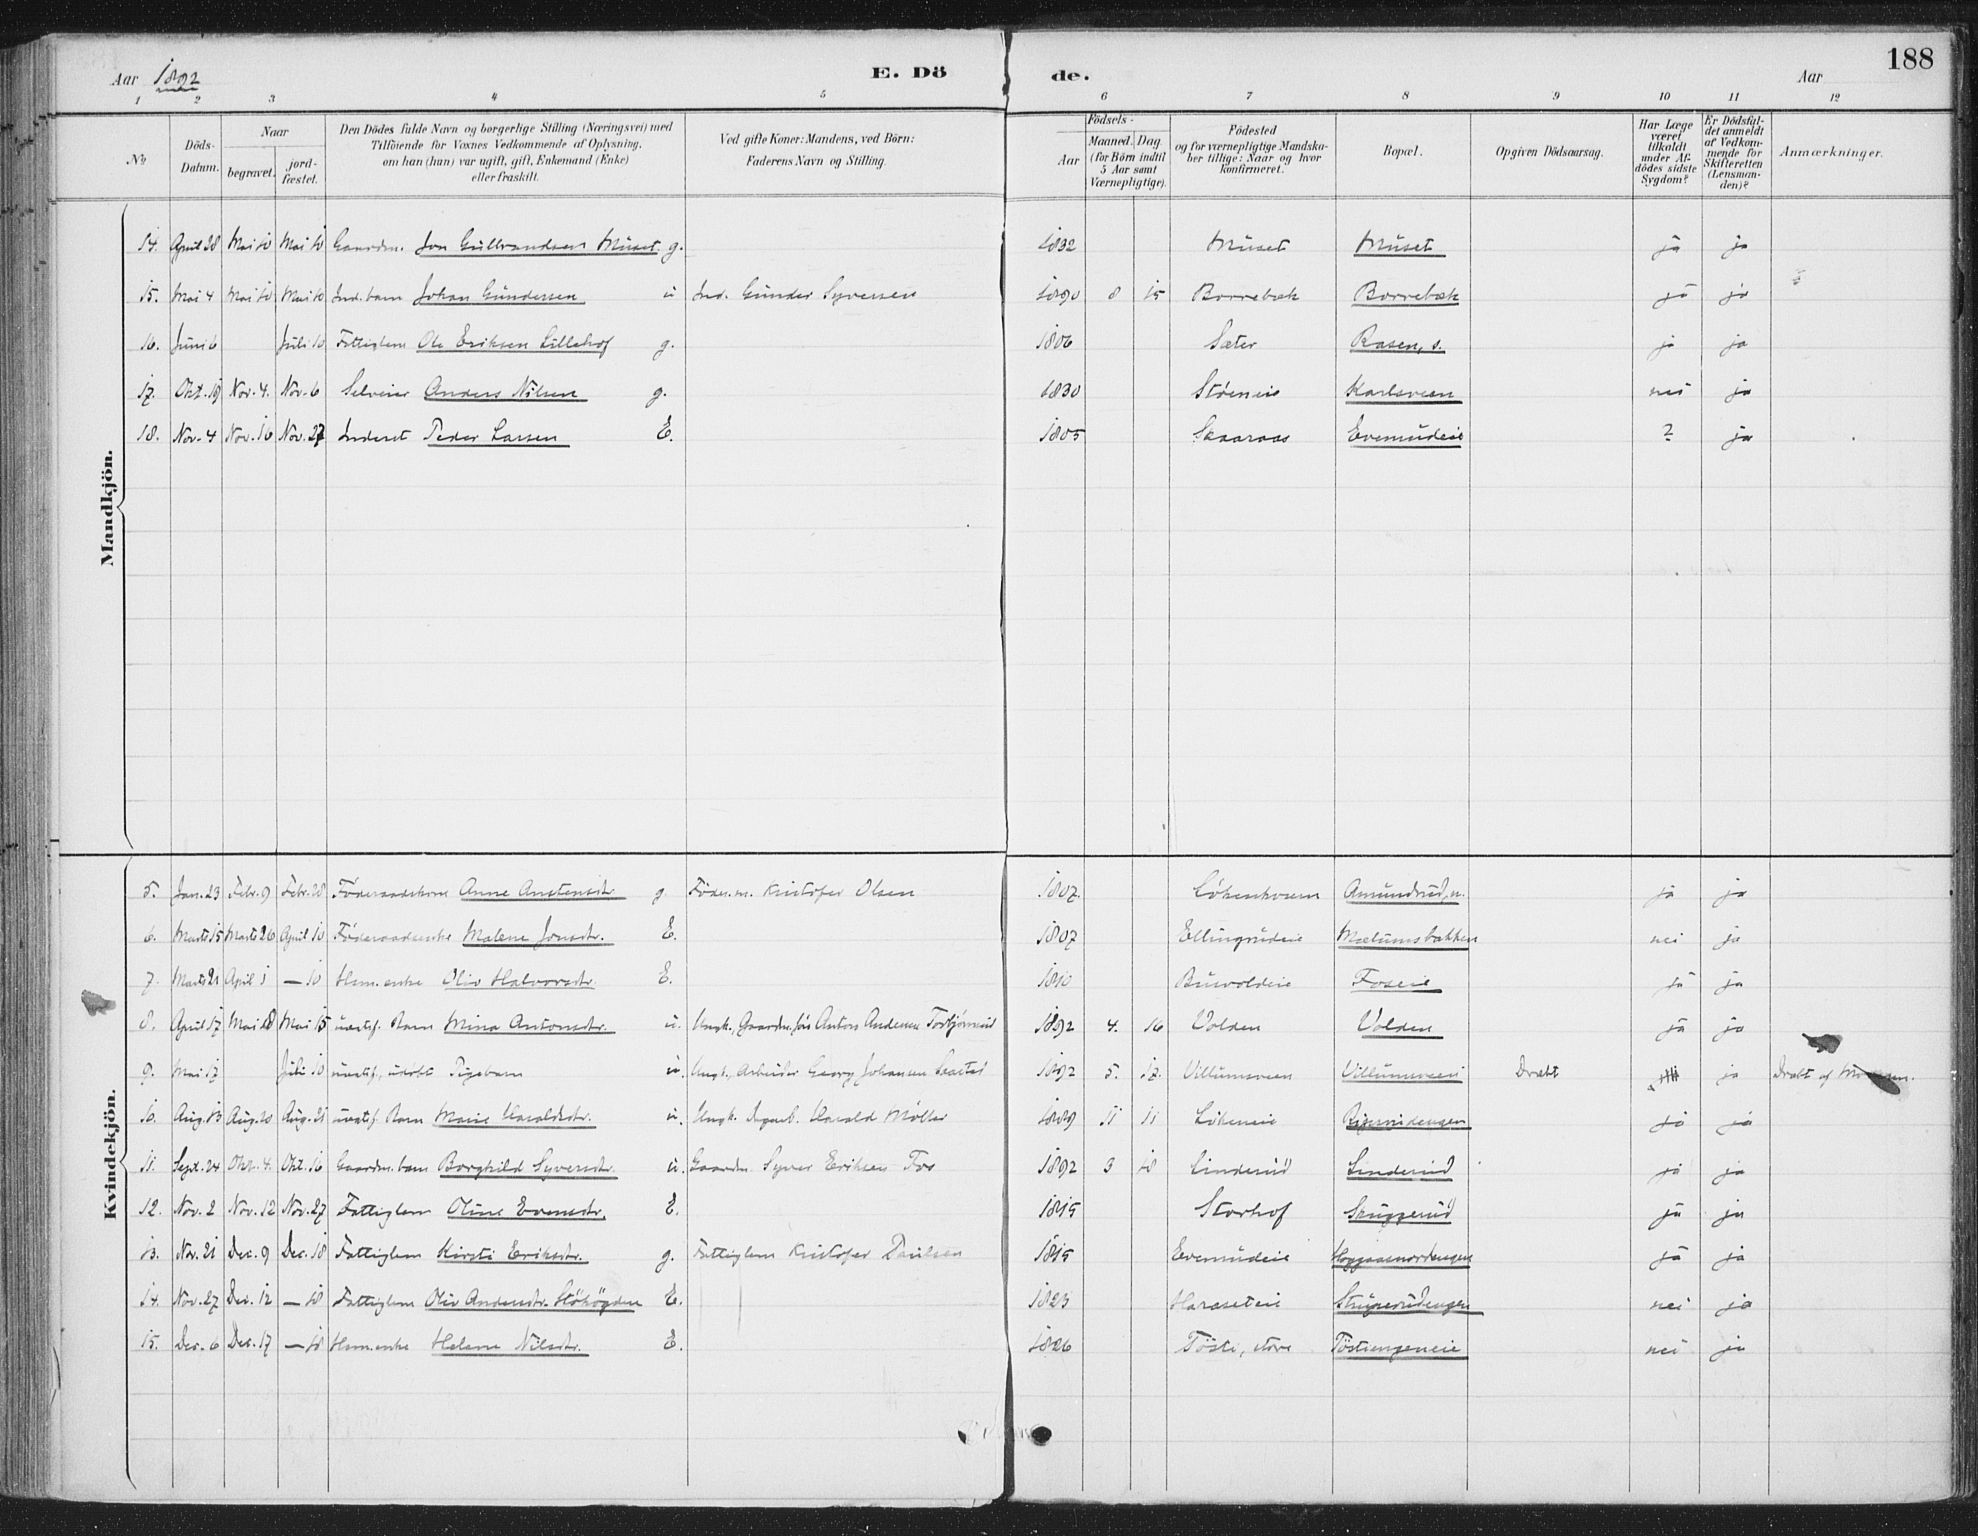 Aar 1892 E. Dö de. Aar 188
1 2 3 4 5 6 7 8 9 10 11 12
No. Döds-Datum. Naar begravet. jord-fæstet. Den Dödes fulde Navn og borgerlige Stilling (Næringsvei) med Tilföiende for Voxnes Vedkommende af Oplysning, om han (hun) var ugift, gift, Enkemand (Enke) eller fraskilt. Ved gifte Koner: Mandens, ved Börn: Faderens Navn og Stilling. Födsels- Aar Maaned. Dag (for Börn indtil 5 Aar samt Værnepligtige). Födested og for værnepligtige Mandska-ber tillige: Naar og hvor konfirmeret. Bopæl. Opgiven Dödsaarsag. Har Læge været tilkaldt under Af-dödes sidste Sygdom? Er Dödsfal-det anmeldt af Vedkom-mende for Skifteretten (Lensman-den)? Anmærkninger.
Mandkjön.
14. April 28 Mai 10 Mai 10 Gaardm. Jon Gulbrandsen Muset g. 1832 Muset Muset ja ja
15. Mai 4 Mai 10 Mai 10 Ind. barn Johan Gundersen u Ind. Gunder Syversen 1890 8 15 Borrebæk Borrebæk ja ja
16. Juni 6 Juli 10 Fattiglem Ole Eriksen Lillehof g. 1806 Sæter Rasen, s. ja ja
17. Okt. 19 Nov. 4. Nov. 6 Selveier Anders Nilsen g. 1830 Støeneie Karlsveen nei ja
18. Nov. 4 Nov. 16 Nov. 27 Inderst Peder Larsen E. 1805 Skaaraas Evenrudeie ? ja
Kvindekjön.
5. Jan. 23 Febr. 9 Febr. 28 Föderaadskone Anne Amstensdtr g. Föder.m. Kristofer Olsen 1807. Løkenhveen Amundrud, n. ja ja
6. Marts 15 Marts 26 April 10 Föderaadsenke Malene Jonsdtr. E. 1807 Ellingrudeie Mælumsbakken nei ja
7. Marts 21 April 1 — 10 Husm.enke Oliv Halvorsdtr. E. 1810 Buvoldeie Foseie ja ja
8. April 17 Mai 18 Mai 15 uægtef. Barn Mina Antonsdtr. u. Ungk., Gaardm.søn Anton Andersen Torbjørnrud 1892 4. 16 Volden Volden ja ja
9. Mai 17 Juli 10 uægtef., udøbt Pigebarn u. Ungk., Arbeider Georg Johansen 1892 5. 17. Villumsveen Villumsveen Dræbt ja Dræbt af Moderen.
10. Aug. 13 Aug. 20 Aug. 21 uægtef. Barn Marie Haraldsdtr. u. Ungk. Harald Møller 1889 11 11 Løkeneie ja ja
11. Sept. 24 Okt. 4. Okt. 16 Gaardm. barn Borghild Syversdtr. u. Gaardm. Syver Eriksen Fos 1892 3 18 Linderud Linderud ja ja
12. Nov. 2 Nov. 12 Nov. 27 Fattiglem Oline Evensdtr. E. 1815 Storhof Skuggerud ja ja
13. Nov. 21 Dec. 9 Dec. 18 Fattiglem Kirsti Eriksdtr. g. Fattiglem Kristofer Paulsen 1815 Evenrudeie ja ja
14. Nov. 27 Dec. 12 — 18 Fattiglem Oliv Andersdtr. E. 1823 Haraseteie nei ja
15. Dec. 6 Dec. 17 — 18 Husm.enke Helene Nilsdtr. E. 1826 Töste, store Töstiengeneie nei ja